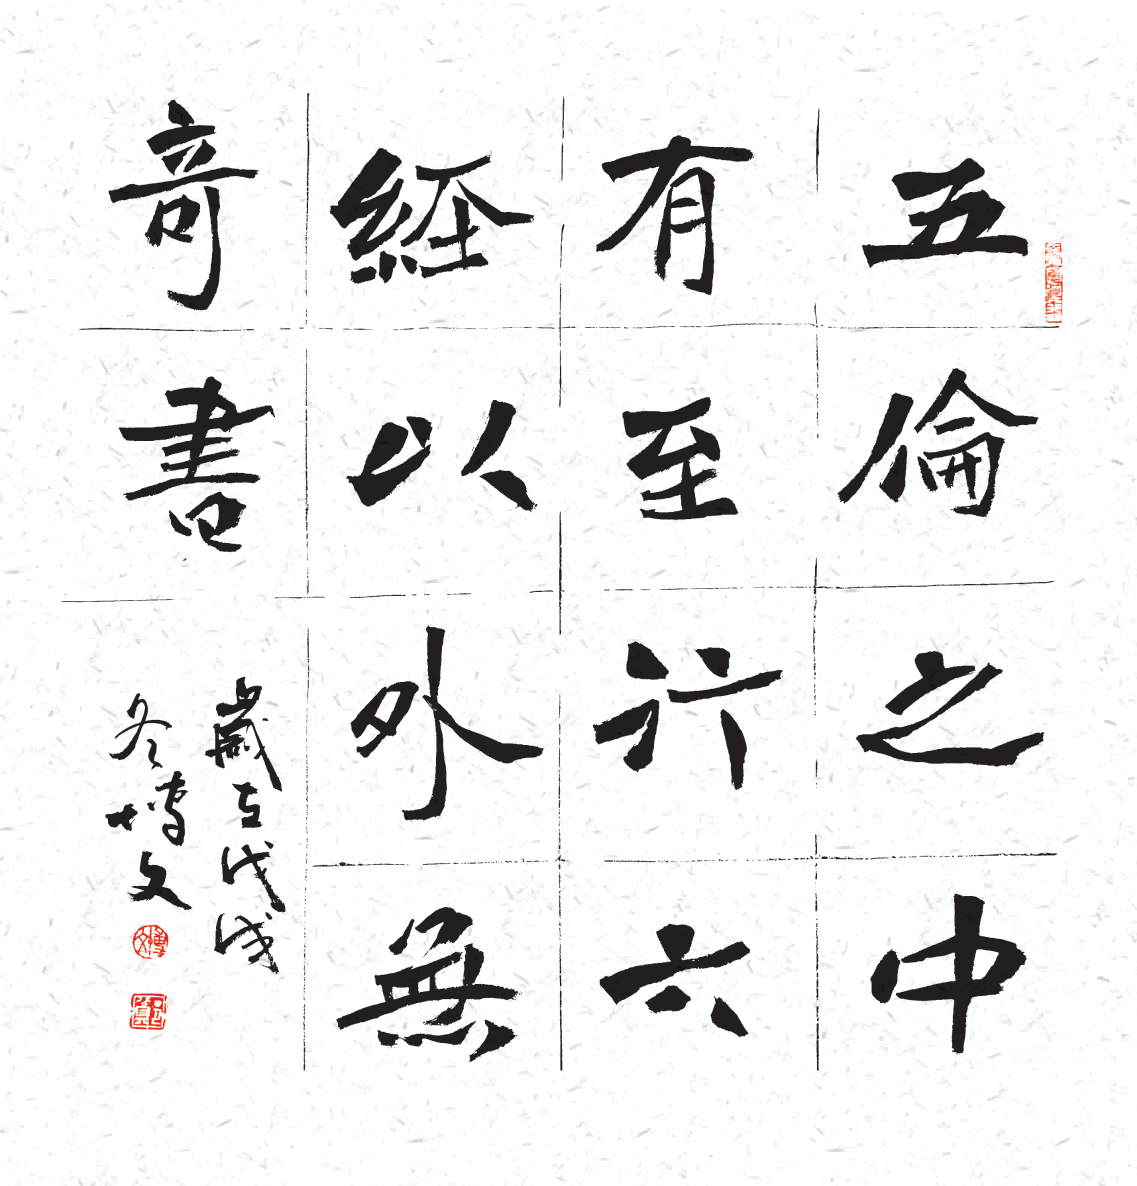 五倫之中
有至行六
經以外無
奇書
歲在戊戌
冬博文
博文